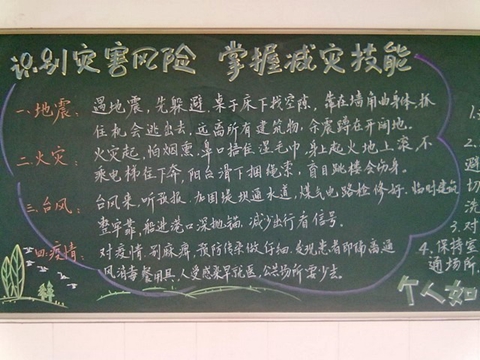 识别灾害风险 掌握减灾技能
一、地震：遇地震，先躲避，桌子床下找空隙，靠在墙角曲身体，抓
住机会逃出去，远离所有建筑物，余震蹲在开阔地。
二、火灾：火灾起，怕烟熏，鼻口捂住湿毛巾，身上起火地上滚，不
乘电梯往下奔，阳台滑下捆绳索，盲目跳楼会伤身。
三、台风：台风来，听预报，加固堤坝通水道，煤气电路检修好，临时建筑
整牢靠，船进港口深抛锚，减少出行看信号。
四、疫情：对疫情，别麻痹，预防传染做仔细，发现患者即隔离，通
风消毒餐用具，人受感染早就医，公共场所要少去。
切
洗
3.对
4.保持室
通场所
个人如